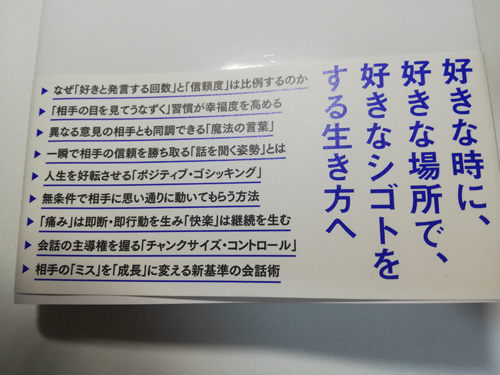 好きな時に、
好きな場所で、
好きなシゴトを
する生き方へ
▶なぜ「好きと発言する回数」と「信頼度」は比例するのか
▶「相手の目を見てうなずく」習慣が幸福度を高める
▶異なる意見の相手とも同調できる「魔法の言葉」
▶一瞬で相手の信頼を勝ち取る「話を聞く姿勢」とは
▶人生を好転させる「ポジティブ・ゴシッキング」
▶無条件で相手に思い通りに動いてもらう方法
▶「痛み」は即断・即行動を生み「快楽」は継続を生む
▶会話の主導権を握る「チャンクサイズ・コントロール」
▶相手の「ミス」を「成長」に変える新基準の会話術